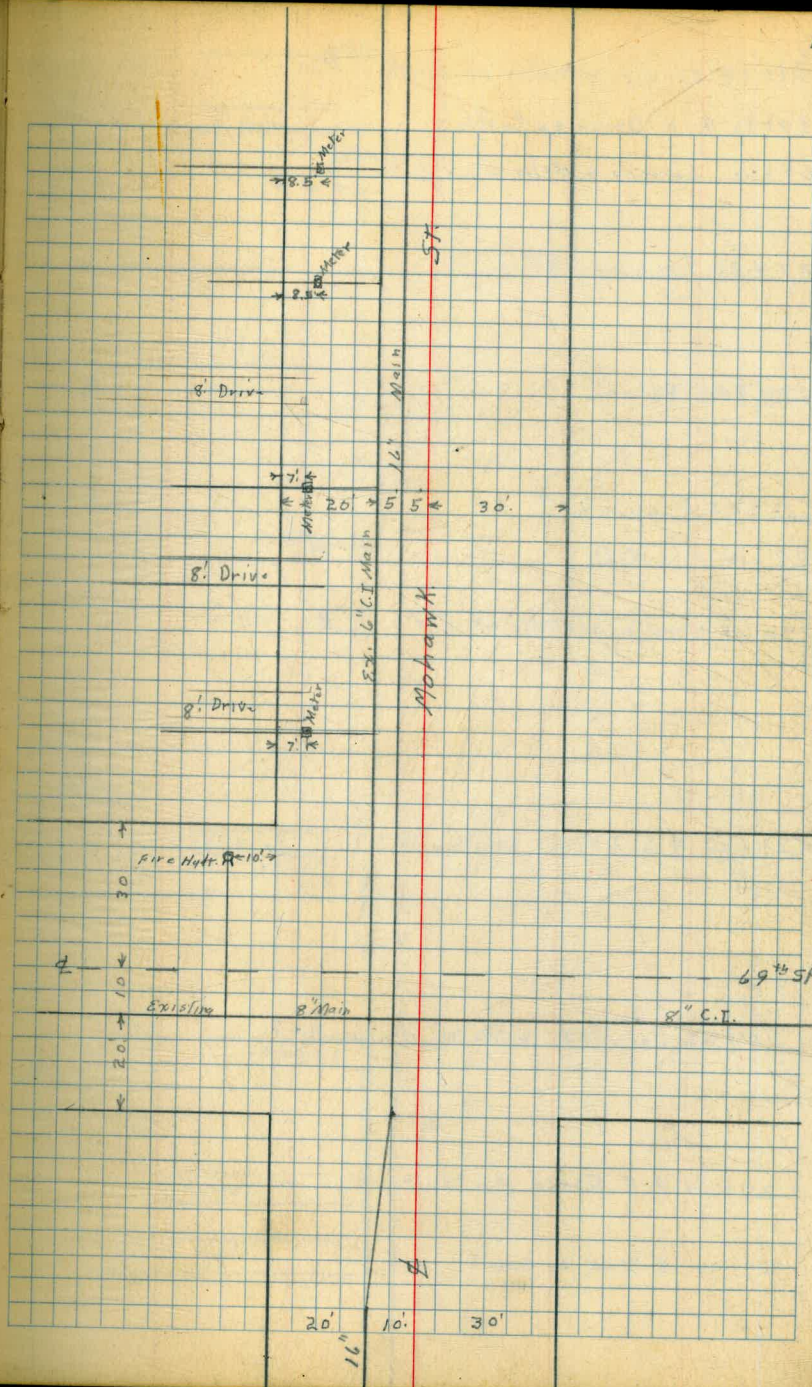 Meter
8.5'
Meter
8.5'
St.
8' Drive
16" Main
7'
Meter
20' 5 5' 30'
Ex. 6" C.I. Main
8' Drive
Mohawk
8' Drive
Meter
7'
Fire Hydr. 10'
30
10'
69th St
Existing 8" Main 8" C.I.
20'
20' 10' 30'
16"